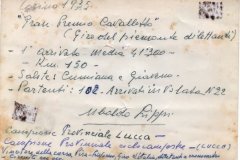 Torino 1935
"Gran Premio Cavalletto"
(Giro del piemonte dilettanti)
- 1° arrivato Media 41300 -
- Km. 150 -
- Salite: Cumiana e Giaveno.
- Partenti: 102. Arrivati in Volata N° 22
Ubaldo Pippi
Campione Provinciale LUCCA -
Campione Provinciale ciclocampestre - (LUCCA)